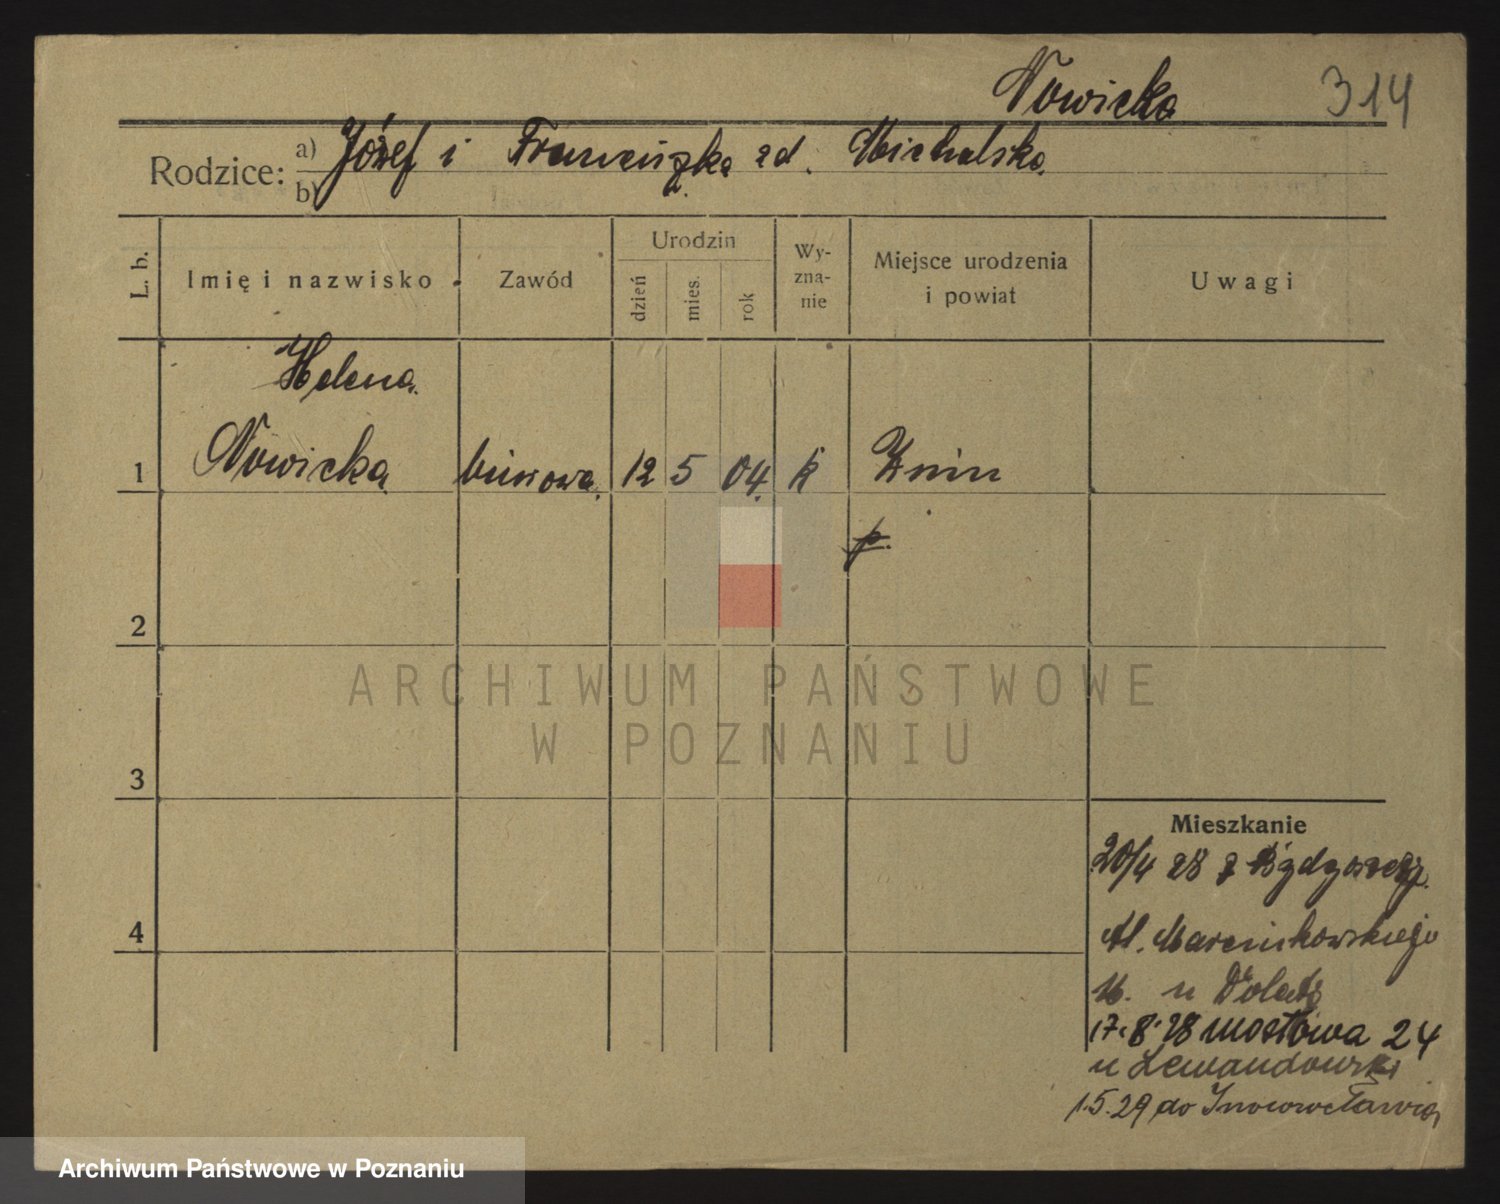 Nowicka 314
Rodzice: a) Józef i Franciszka zd. Michalska
b)
L. b. Imię i nazwisko Zawód Urodzin dzień mies. rok Wyznanie Miejsce urodzenia i powiat Uwagi
Helena
1 Nowicka biurowa. 12 5 04. k Żnin
p.
2
3
4
Mieszkanie
20/4 28 z Bydgoszczy.
Al. Marcinkowskiego
u
17.8.28 Mostowa 24
u Lewandowski
1.5.29 do Inowrocławia
ARCHIWUM PAŃSTWOWE
W POZNANIU
Archiwum Państwowe w Poznaniu